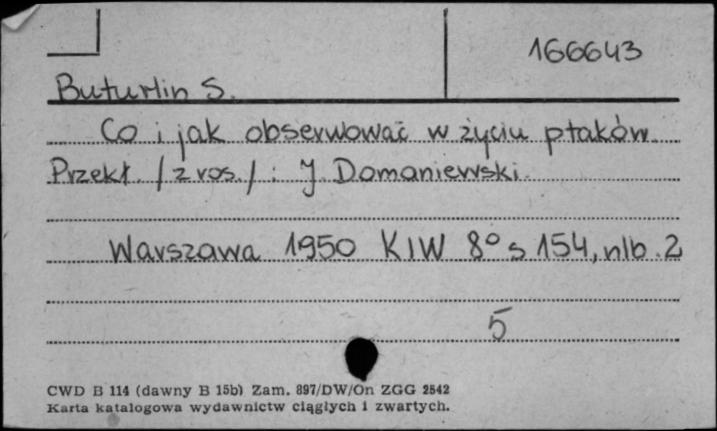 166643
Buturlin S.
Co i jak obserwować w życiu ptaków.
Przekł. /z ros./ : J. Domaniewski.
Warszawa 1950 KIW 8° s 154, nlb. 2
5
CWD B 114 (dawny B 15b) Zam. 897/DW/On ZGG 2542
Karta katalogowa wydawnictw ciągłych i zwartych.